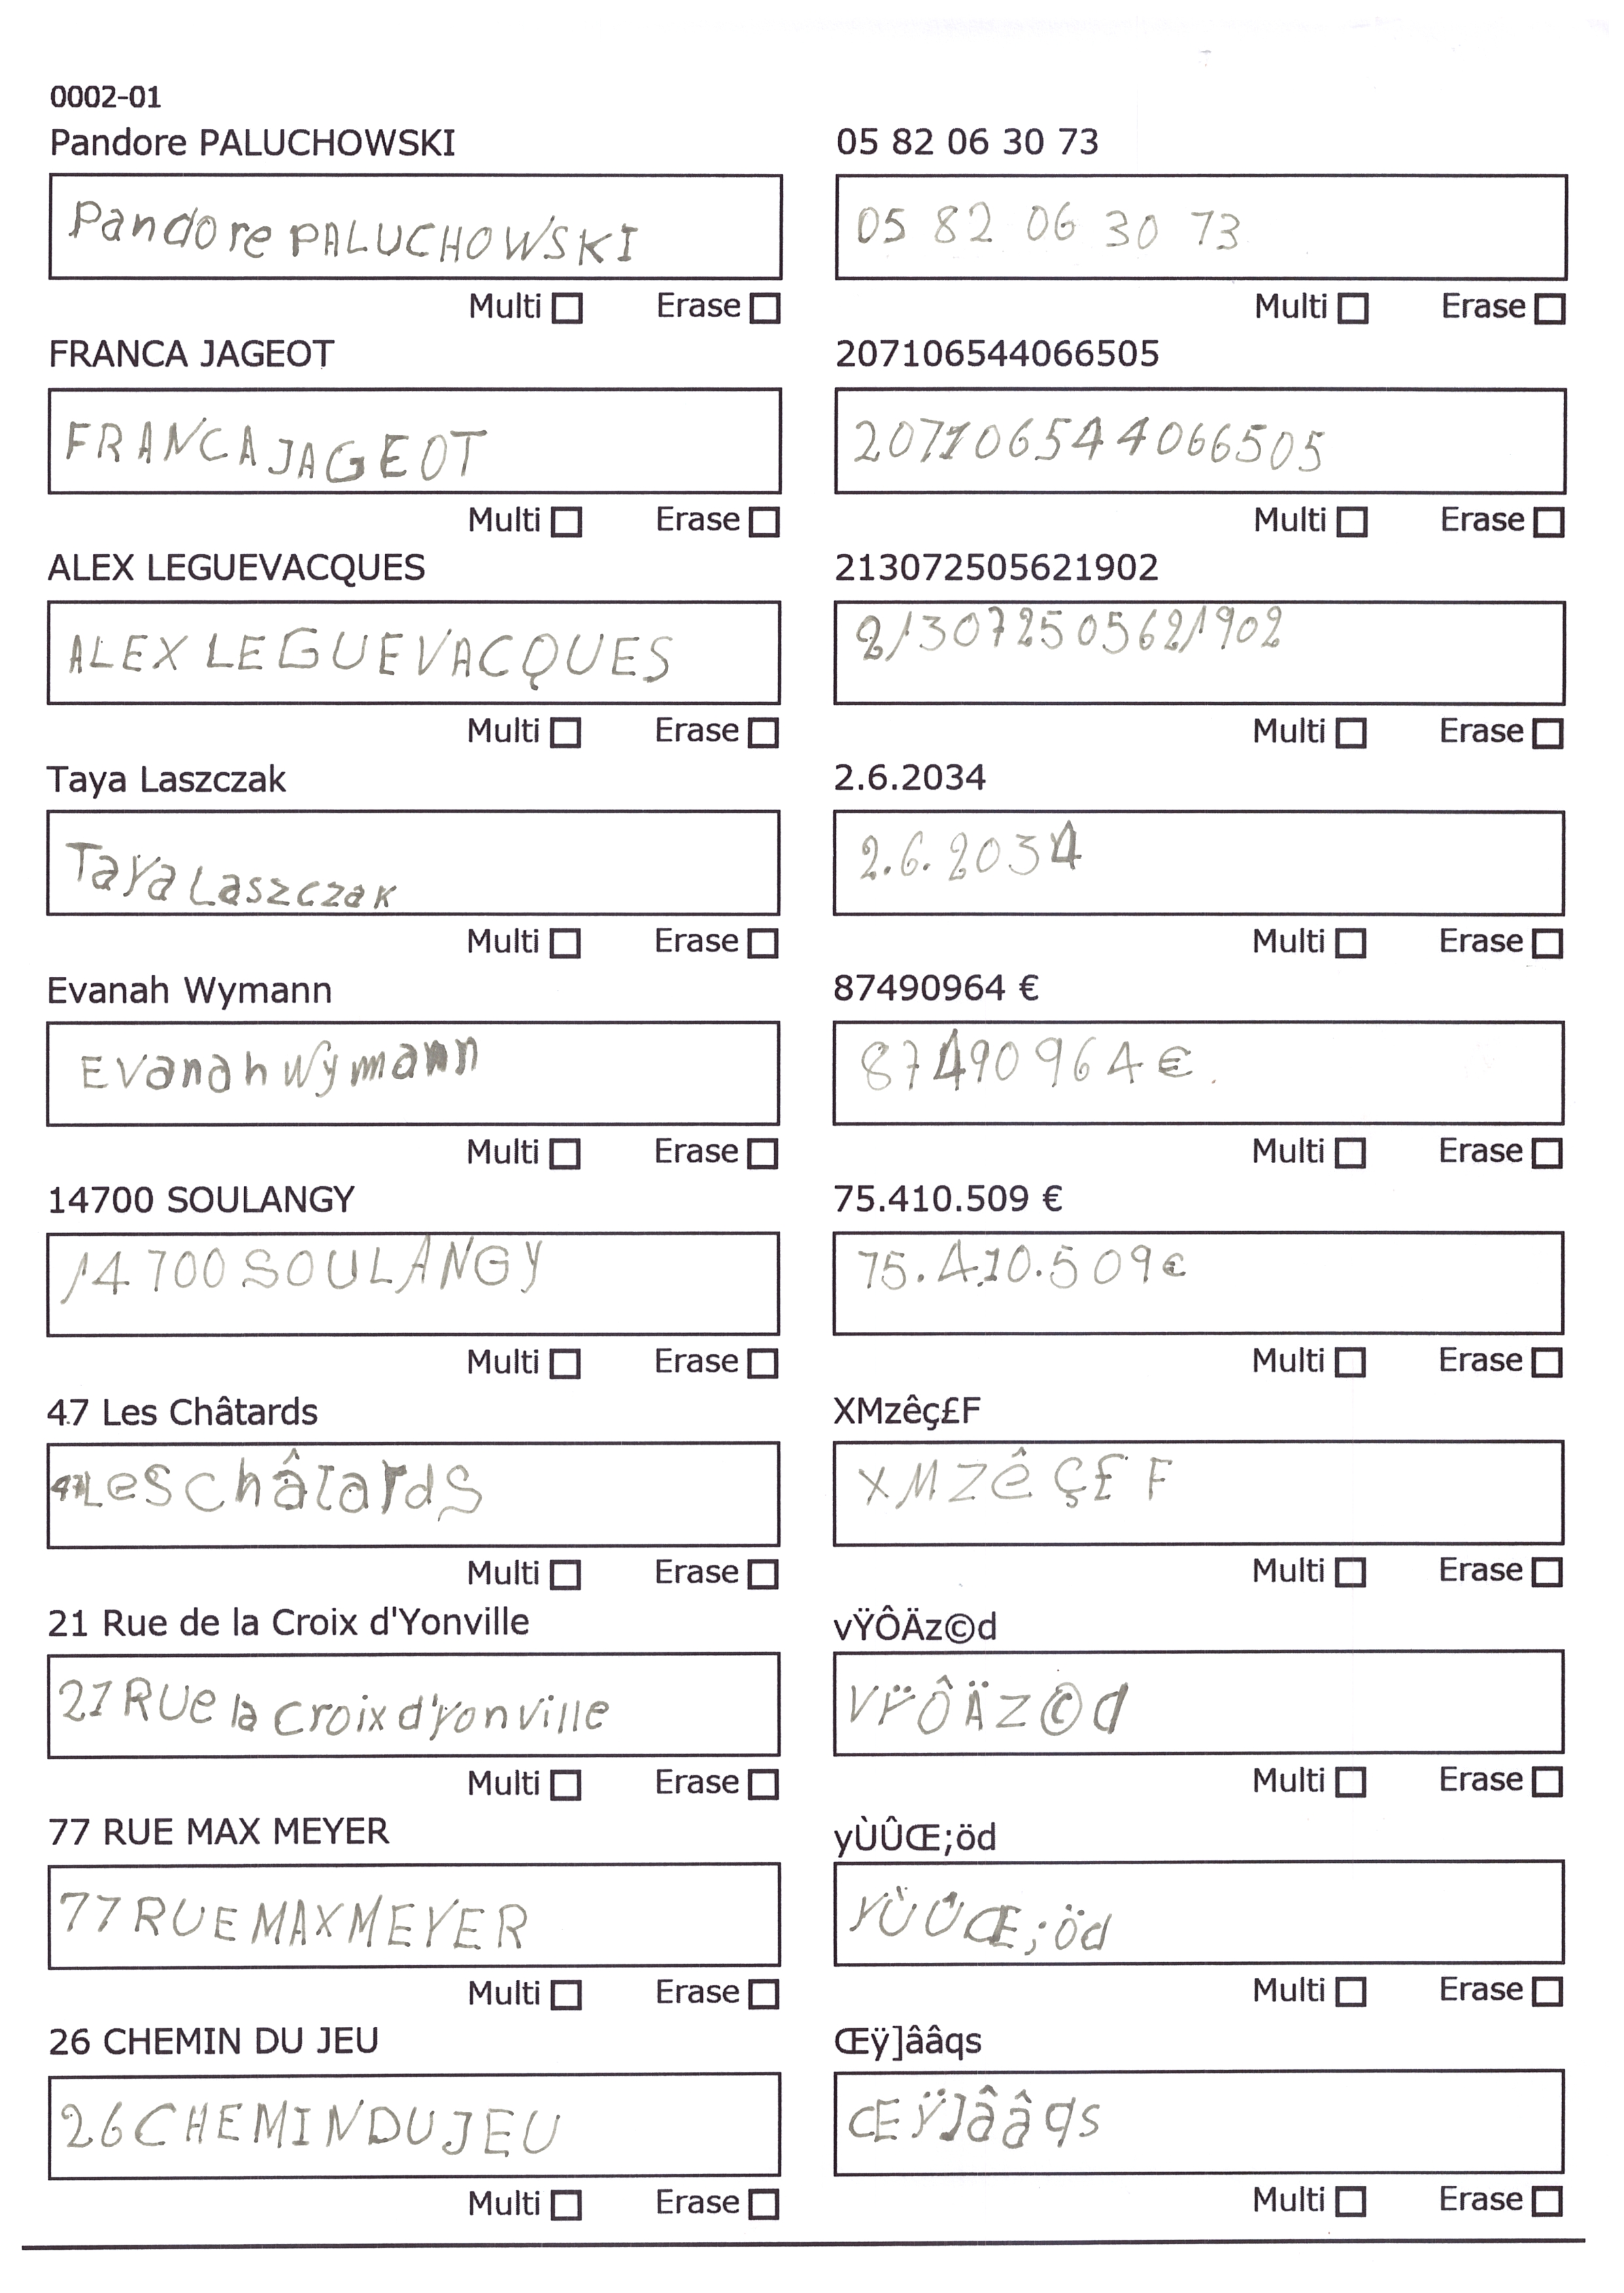 0002-01
Pandore PALUCHOWSKI
Pandore PALUCHOWSKI
Multi Erase
FRANCA JAGEOT
FRANCA JAGEOT
Multi Erase
ALEX LEGUEVACQUES
ALEX LEGUEVACQUES
Multi Erase
Taya Laszczak
Taya Laszczak
Multi Erase
Evanah Wymann
Evanah Wymann
Multi Erase
14700 SOULANGY
14700 SOULANGY
Multi Erase
47 Les Châtards
47 Les Châtards
Multi Erase
21 Rue de la Croix d'Yonville
21 Rue la Croix d'Yonville
Multi Erase
77 RUE MAX MEYER
77 RUE MAX MEYER
Multi Erase
26 CHEMIN DU JEU
26 CHEMIN DU JEU
Multi Erase
05 82 06 30 73
05 82 06 30 73
Multi Erase
207106544066505
207106544066505
Multi Erase
213072505621902
213072505621902
Multi Erase
2.6.2034
2.6.2034
Multi Erase
87490964 €
87490964 € .
Multi Erase
75.410.509 €
75.410.509 €
Multi Erase
XMzêç£F
XMzêç£F
Multi Erase
vŸÔÄz©d
vŸÔÄz©d
Multi Erase
yÙÛŒ;öd
yÙÛŒ;öd
Multi Erase
Œÿ]ââqs
Œÿ]ââqs
Multi Erase